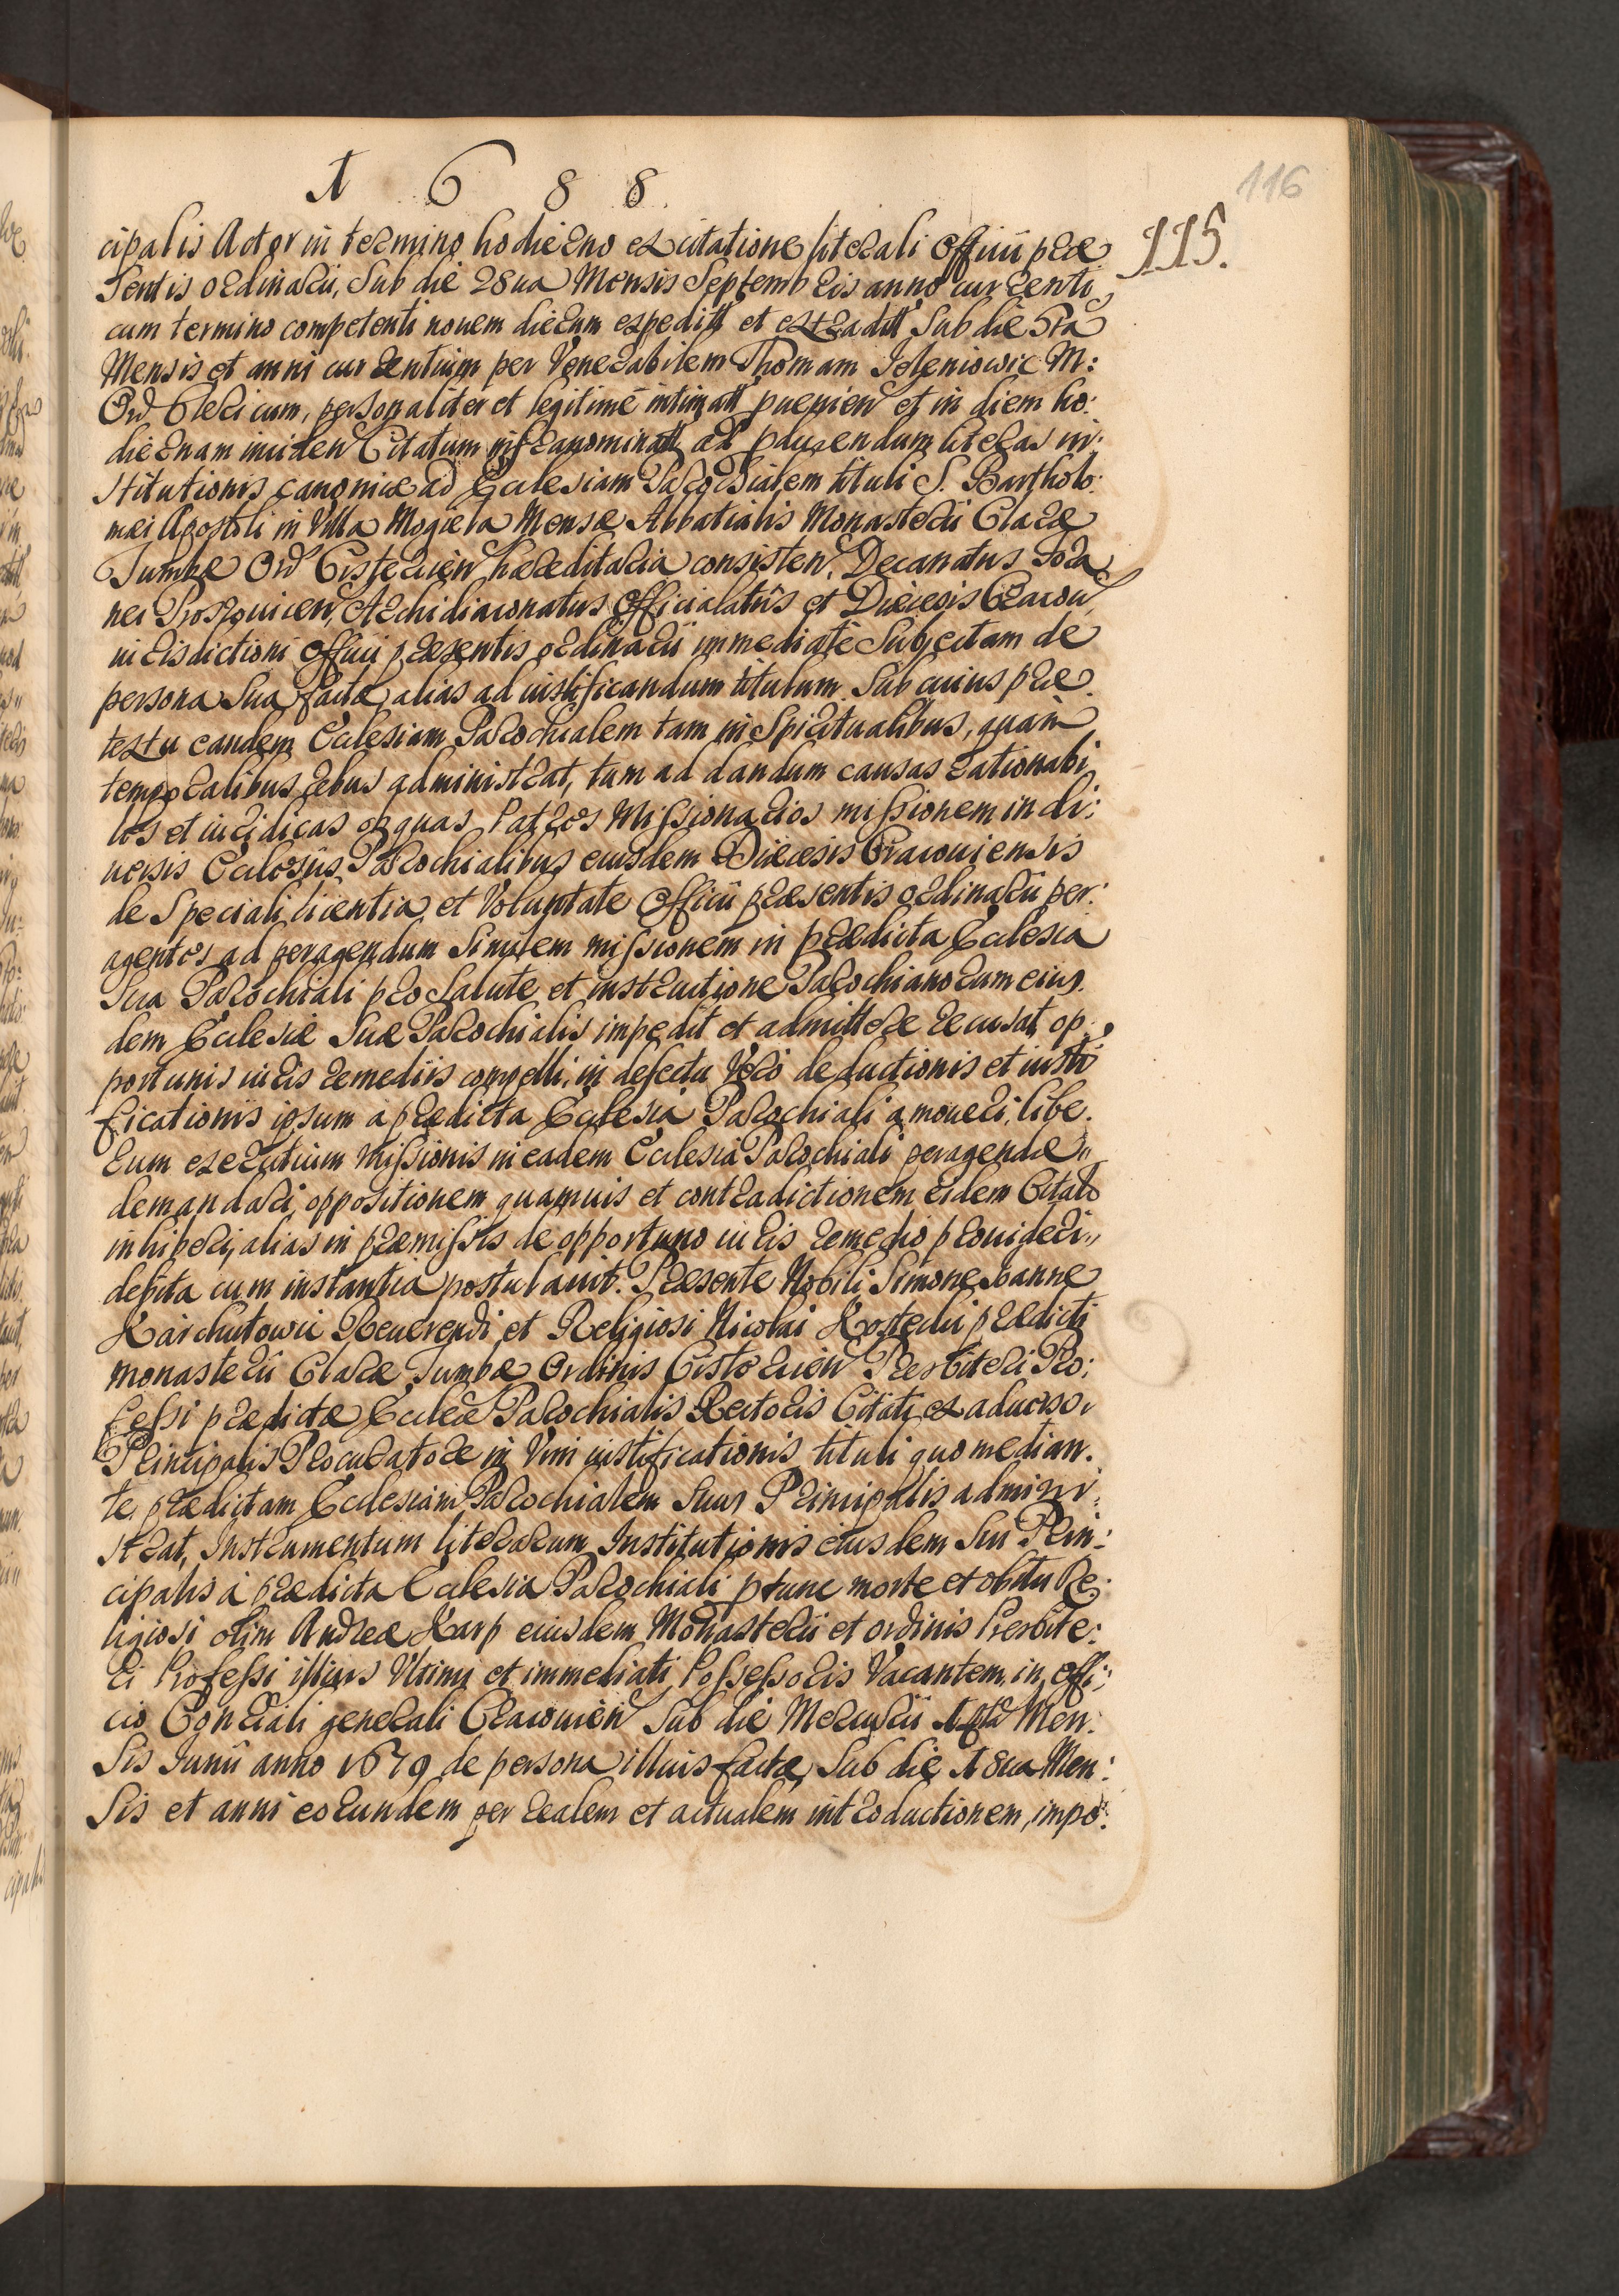 1688
116
115.
cipalis Actor in termino hodierno ex citatione literali Officii præ
sentis ordinarii, Sub die 28ua Mensis Septembris anno currenti
cum termino competenti nouem dierum expeditt et extraditt Sub die 5ta
Mensis et anni currentium per Venerabilem Thomam M:
Ord Clericum, personaliter et legitime intimatt et in diem ho:
diernam Citatum infranominatt ad literas in:
stitutionis canonicæ ad Ecclesiam Parochialem tituli S. Bartholo:
mæi Apostoli in Villa Mogiła Mensæ Abbatialis Monasterii Claræ
Tumbæ Ord Cistercien hæreditaria consisten, Decanatus fora
nei Proszouicen, Archidiaconatus Officialatus et Diæcesis Cracou
iurisdictioni Officii præsentis ordinarii immediate Subjectam de
persona Sua factæ, alias ad iustificandum titulum Sub cuius præ
textu eandem Ecclesiam Parochialem tam in Spiritualibus, quam
temporalibus rebus administrat, tum ad dandum causas rationabi
les et iuridicas ob quas Patres Missionarios missionem in di:
uersis Eclesiis Parochialibus eiusdem Diæcesis Cracouiensis
de Speciali licentia et Voluntate Officii præsentis ordinarii per:
agentes ad peragendum Similem missionem in prædicta Ecclesia
Sua Parochiali pro Salute et instructione Parochianorum eius
dem Ecclesiæ Suæ Parochialis impedit et admittere recusat, op:
portunis iuris remediis compelli, in defectu Vero deductionis et iusti
ficationis ipsum à prædicta Ecclesia Parochiali amoueri, libe
rum exercitium Missionis in eadem Eclesia Parochiali peragendæ
demandari, oppositionem quamuis et contradictionem eidem Citato
inhiberi, alias in præmissis de opportuno iuris remedio prouideri
debita cum instantia postulauit. Præsente Nobili Simone Joanne
Karchutowic Reuerendi et Religiosi Nicolai prædicti
monasterii Claræ Tumbæ Ordinis Cistercien Presbiteri Pro:
fessi prædictæ Eccleæ Parochialis Rectoris Citati ex aduerso
Principalis Procuratore in Vim iustificationis tituli quo median
te prædictam Ecclesiam Parochialem Suus Principalis admini
strat, Instrumentum literarum Institutionis eiusdem Sui Prin:
cipalis à prædicta Ecclesia Parochiali ptunc morte et obitu Re:
ligiosi olim Andreæ Karp eiusdem Monasterii et ordinis Presbite:
ri Professi illius Vltimi et immediati Possessoris Vacantem, in Offi:
cio Conrali generali Cracouien Sub die Mercurii Men:
sis Iunii anno 1679 de persona illius factæ, Sub die 18ua Men:
sis et anni eorundem per realem et actualem introductionem, impo: